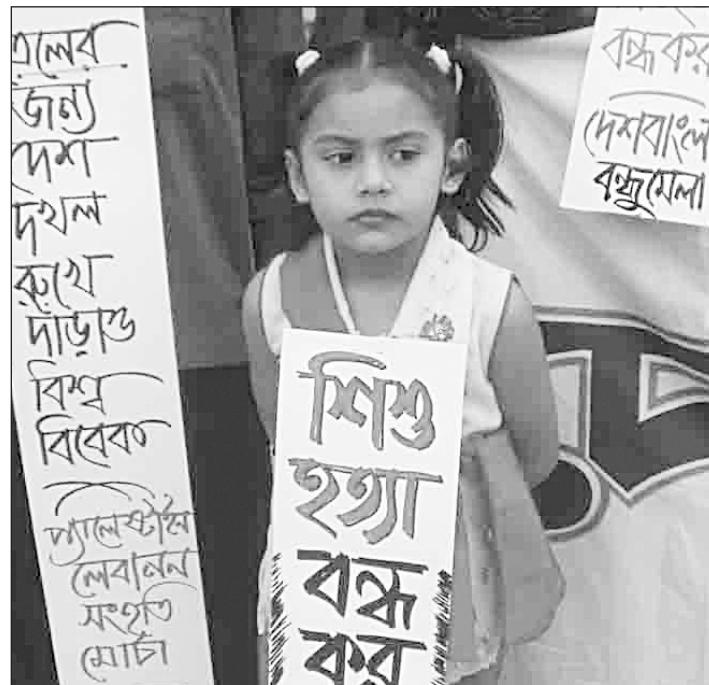 তেলের
জন্য
দেশ
দখল
রুখে
দাঁড়াও
বিশ্ব
বিবেক
প্যালেষ্টাইন
লেবানন
সংহতি
মোর্চা
শিশু
হত্যা
বন্ধ
কর
বন্ধ কর
দেশবাংলা
বন্ধুমেলা